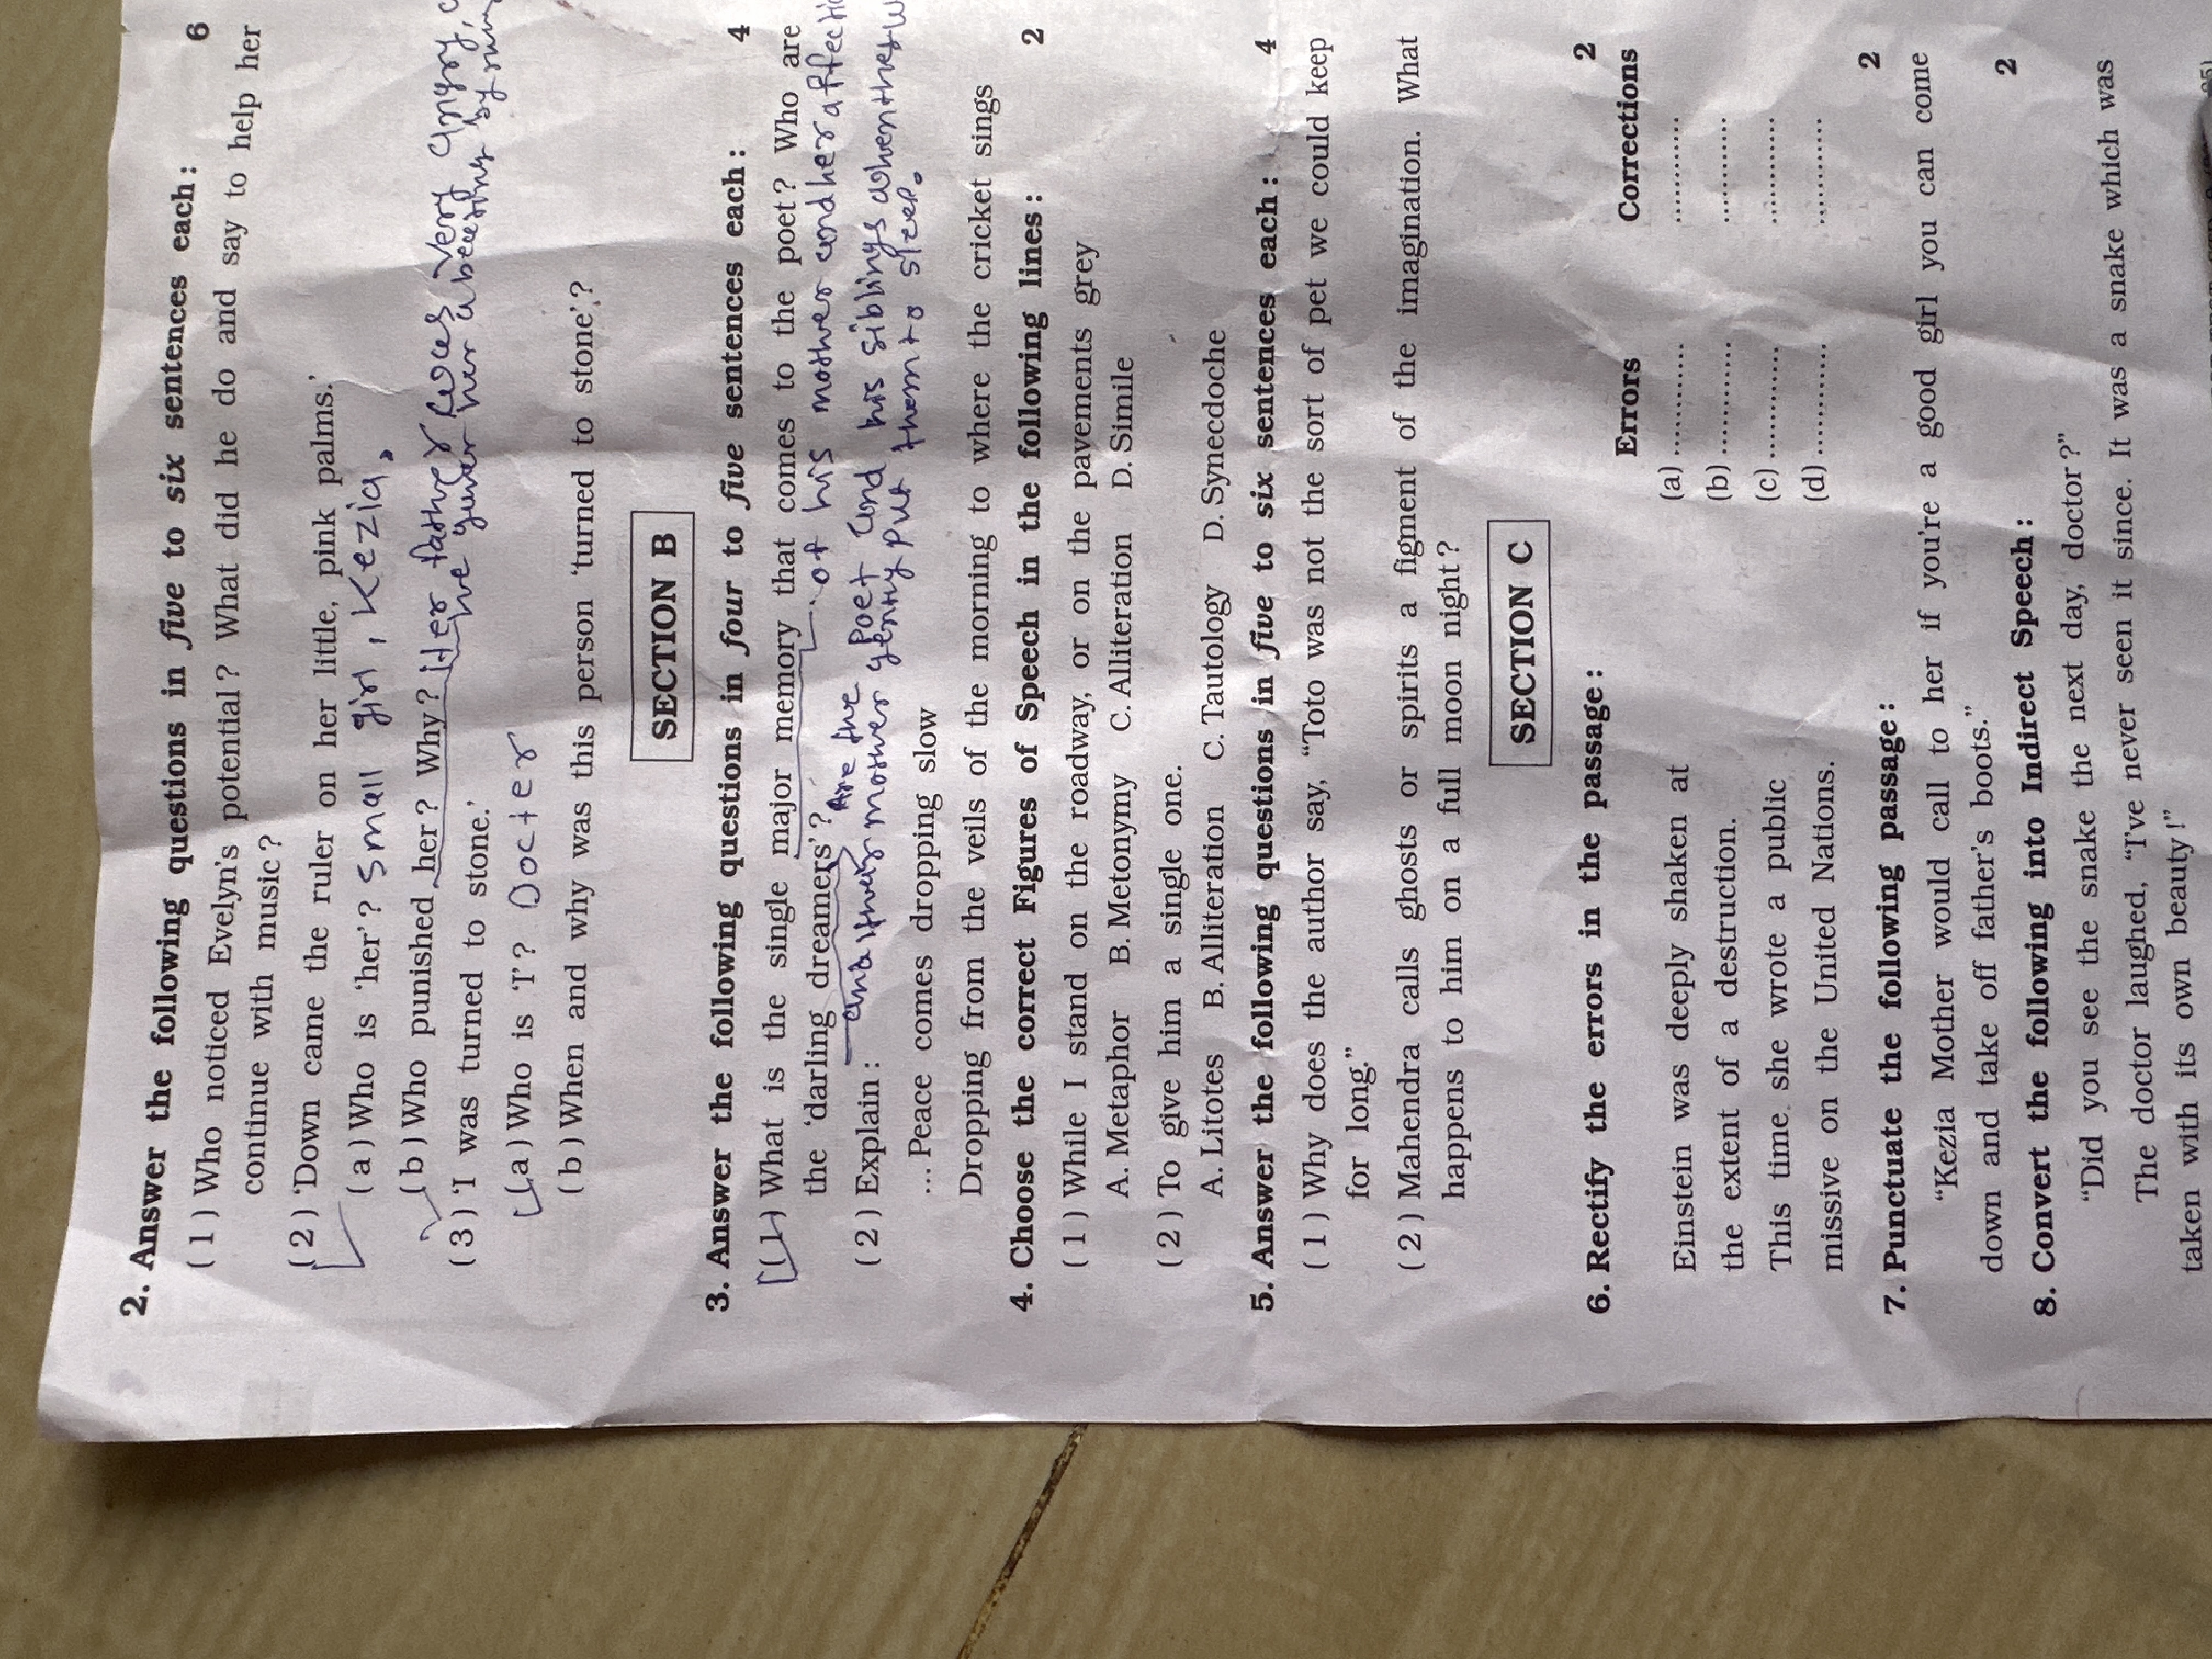 2. Answer the following questions in five to six sentences each : 6
( 1 ) Who noticed Evelyn's potential ? What did he do and say to help her
continue with music ?
( 2 ) 'Down came the ruler on her little, pink palms.'
( a ) Who is 'her' ? Small girl, Kezia,
( b ) Who punished her ? Why ? Her father very angry,
he her by
( 3 ) 'I was turned to stone.'
( a ) Who is 'I' ? Docter
( b ) When and why was this person 'turned to stone' ?
SECTION B
3. Answer the following questions in four to five sentences each : 4
( 1 ) What is the single major memory that comes to the poet ? Who are
of his mother and her
the 'darling dreamers' ? Are the Poet and his siblings when they
and their mother put them to sleep.
( 2 ) Explain :
... Peace comes dropping slow
Dropping from the veils of the morning to where the cricket sings
4. Choose the correct Figures of Speech in the following lines : 2
( 1 ) While I stand on the roadway, or on the pavements grey
A. Metaphor B. Metonymy C. Alliteration D. Simile
( 2 ) To give him a single one.
A. Litotes B. Alliteration C. Tautology D. Synecdoche
5. Answer the following questions in five to six sentences each : 4
( 1 ) Why does the author say, "Toto was not the sort of pet we could keep
for long."
( 2 ) Mahendra calls ghosts or spirits a figment of the imagination. What
happens to him on a full moon night ?
SECTION C
6. Rectify the errors in the passage : 2
Errors Corrections
Einstein was deeply shaken at (a) ............ ............
the extent of a destruction. (b) ............ ............
This time she wrote a public (c) ............ ............
missive on the United Nations. (d) ............ ............
7. Punctuate the following passage : 2
"Kezia Mother would call to her if you're a good girl you can come
down and take off father's boots."
8. Convert the following into Indirect Speech : 2
"Did you see the snake the next day, doctor ?"
The doctor laughed, "I've never seen it since. It was a snake which was
taken with its own beauty !"